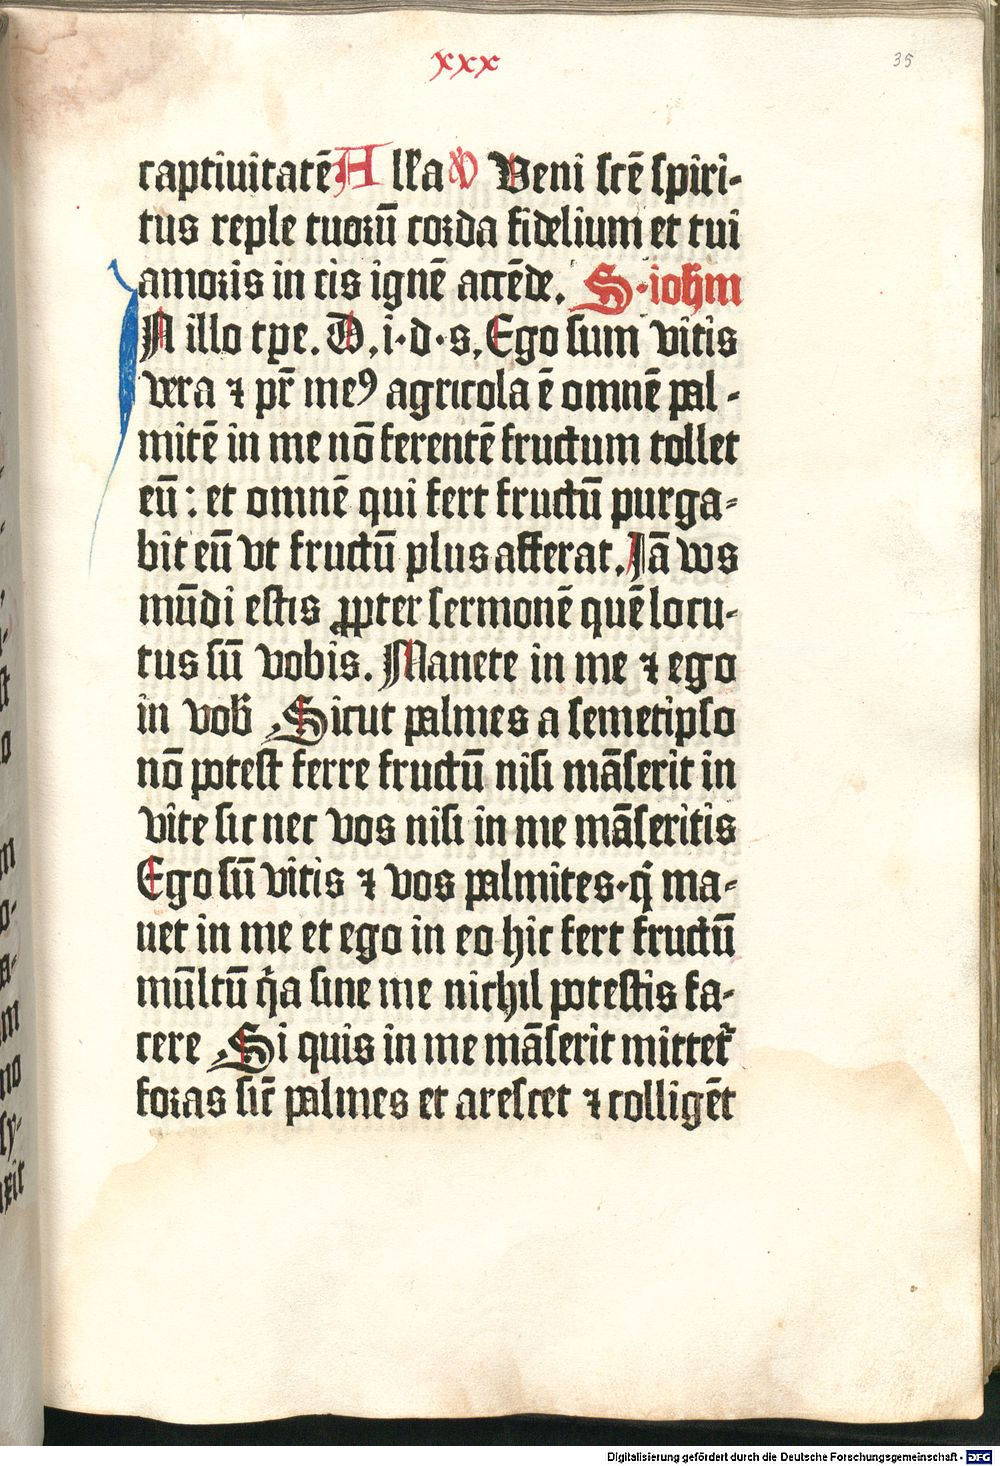 xxx
35
captiuitatē A lľa ℣ Veni scē spiri-
tus reple tuoꝝū coꝛda fidelium et tui
amoꝛis in eis ignē accēde. S. ioħm
IN illo tꝑe. D. i. d. s. Ego sum vitis
vera ⁊ pr̄ meꝰ agricola ē omnē pal-
mitē in me nō ferentē fructum tollet
eū : et omnē qui fert fructū purga-
bit eū vt fructū plus afferat. Iā vos
mūdi estis ꝓpter sermonē quē locu-
tus sū vobis. Manete in me ⁊ ego
in vob̄ . Sicut palmes a semetipso
nō potest ferre fructū nisi māserit in
vite sic nec vos nisi in me māseritis
Ego sū vitis ⁊ vos palmites. q̇ ma-
net in me et ego in eo hic fert fructū
mūltū q̇a sine me nichil potestis fa-
cere . Si quis in me māserit mittet᷑
foꝛas sic̄ palmes et arescet ⁊ colligēt
Digitalisierung gefördert durch die Deutsche Forschungsgemeinschaft - DFG